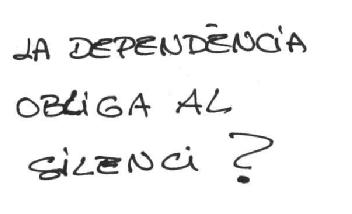 LA DEPENDÈNCIA
OBLIGA AL
SILENCI?